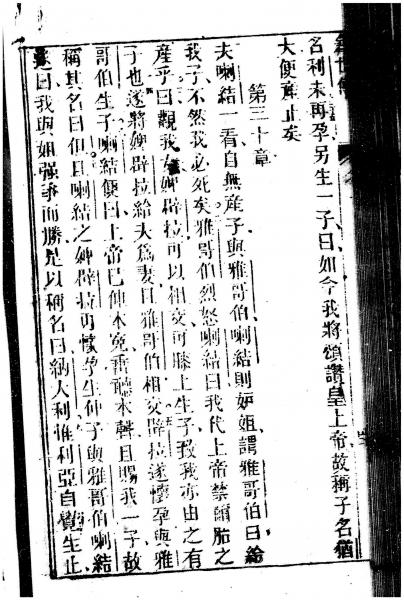 名利未再孕另生一子曰如今我將頌讚皇上帝故稱子名猶
大便產止矣
第三十章
夫喇結一看自無產子與雅哥伯喇結則妒姐謂雅哥伯曰給
我子不然我必死矣雅哥伯烈怒喇結曰我代上帝禁爾胎之
產乎曰觀我婢辟拉可以相交可膝上生子致我亦由之有
子也遂將婢辟拉給夫為妻且雅哥伯相交辟拉遂懷孕與雅
哥伯生子喇結便曰上帝已伸本冤垂聽本聲且賜我一子故
稱其名曰但且喇結之婢辟拉再懷孕生仲子與雅哥伯喇結
遂曰我與姐强爭而勝是以稱名曰納大利惟利亞自覺生止